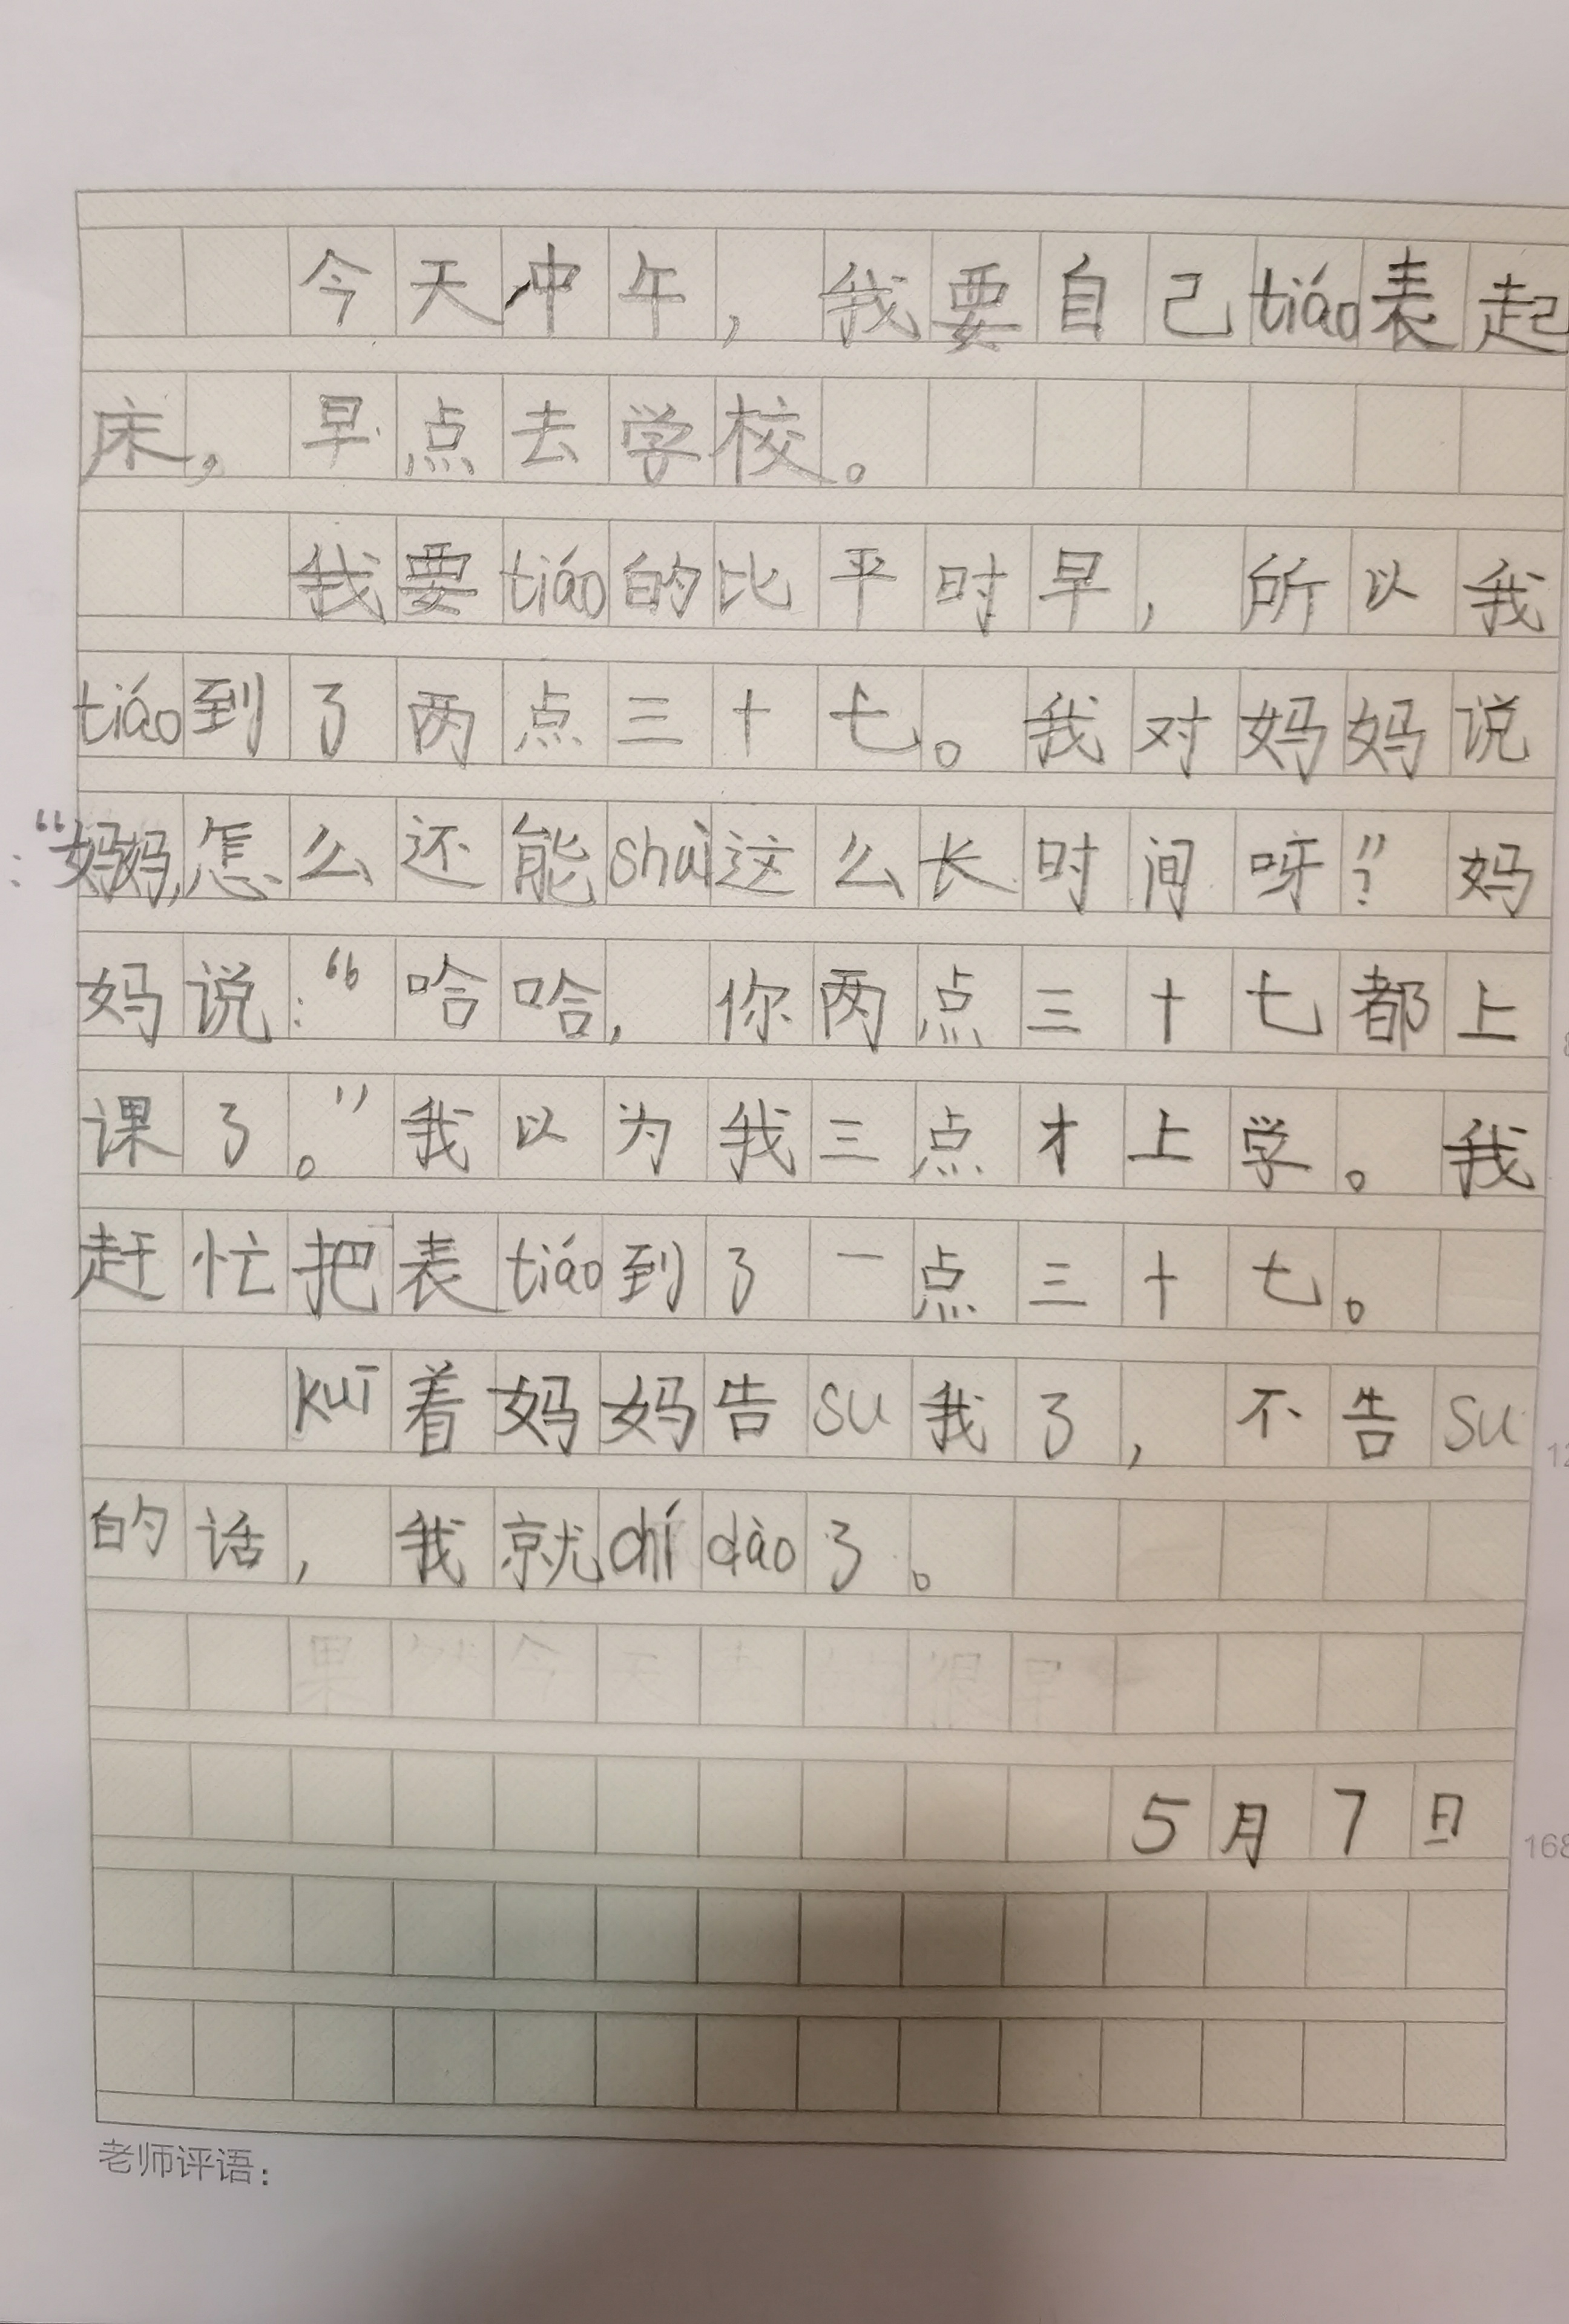 今天中午，我要自己tiáo表起
床，早点去学校。
我要tiáo的比平时早，所以我
tiáo到了两点三十七。我对妈妈说
：“妈妈，怎么还能shuì这么长时间呀？”妈
妈说：“哈哈，你两点三十七都上
课了。”我以为我三点才上学。我
赶忙把表tiáo到了一点三十七。
kuī着妈妈告su我了，不告su
的话，我就chí dào了。
果 今天 很早
5月7日
168
老师评语：